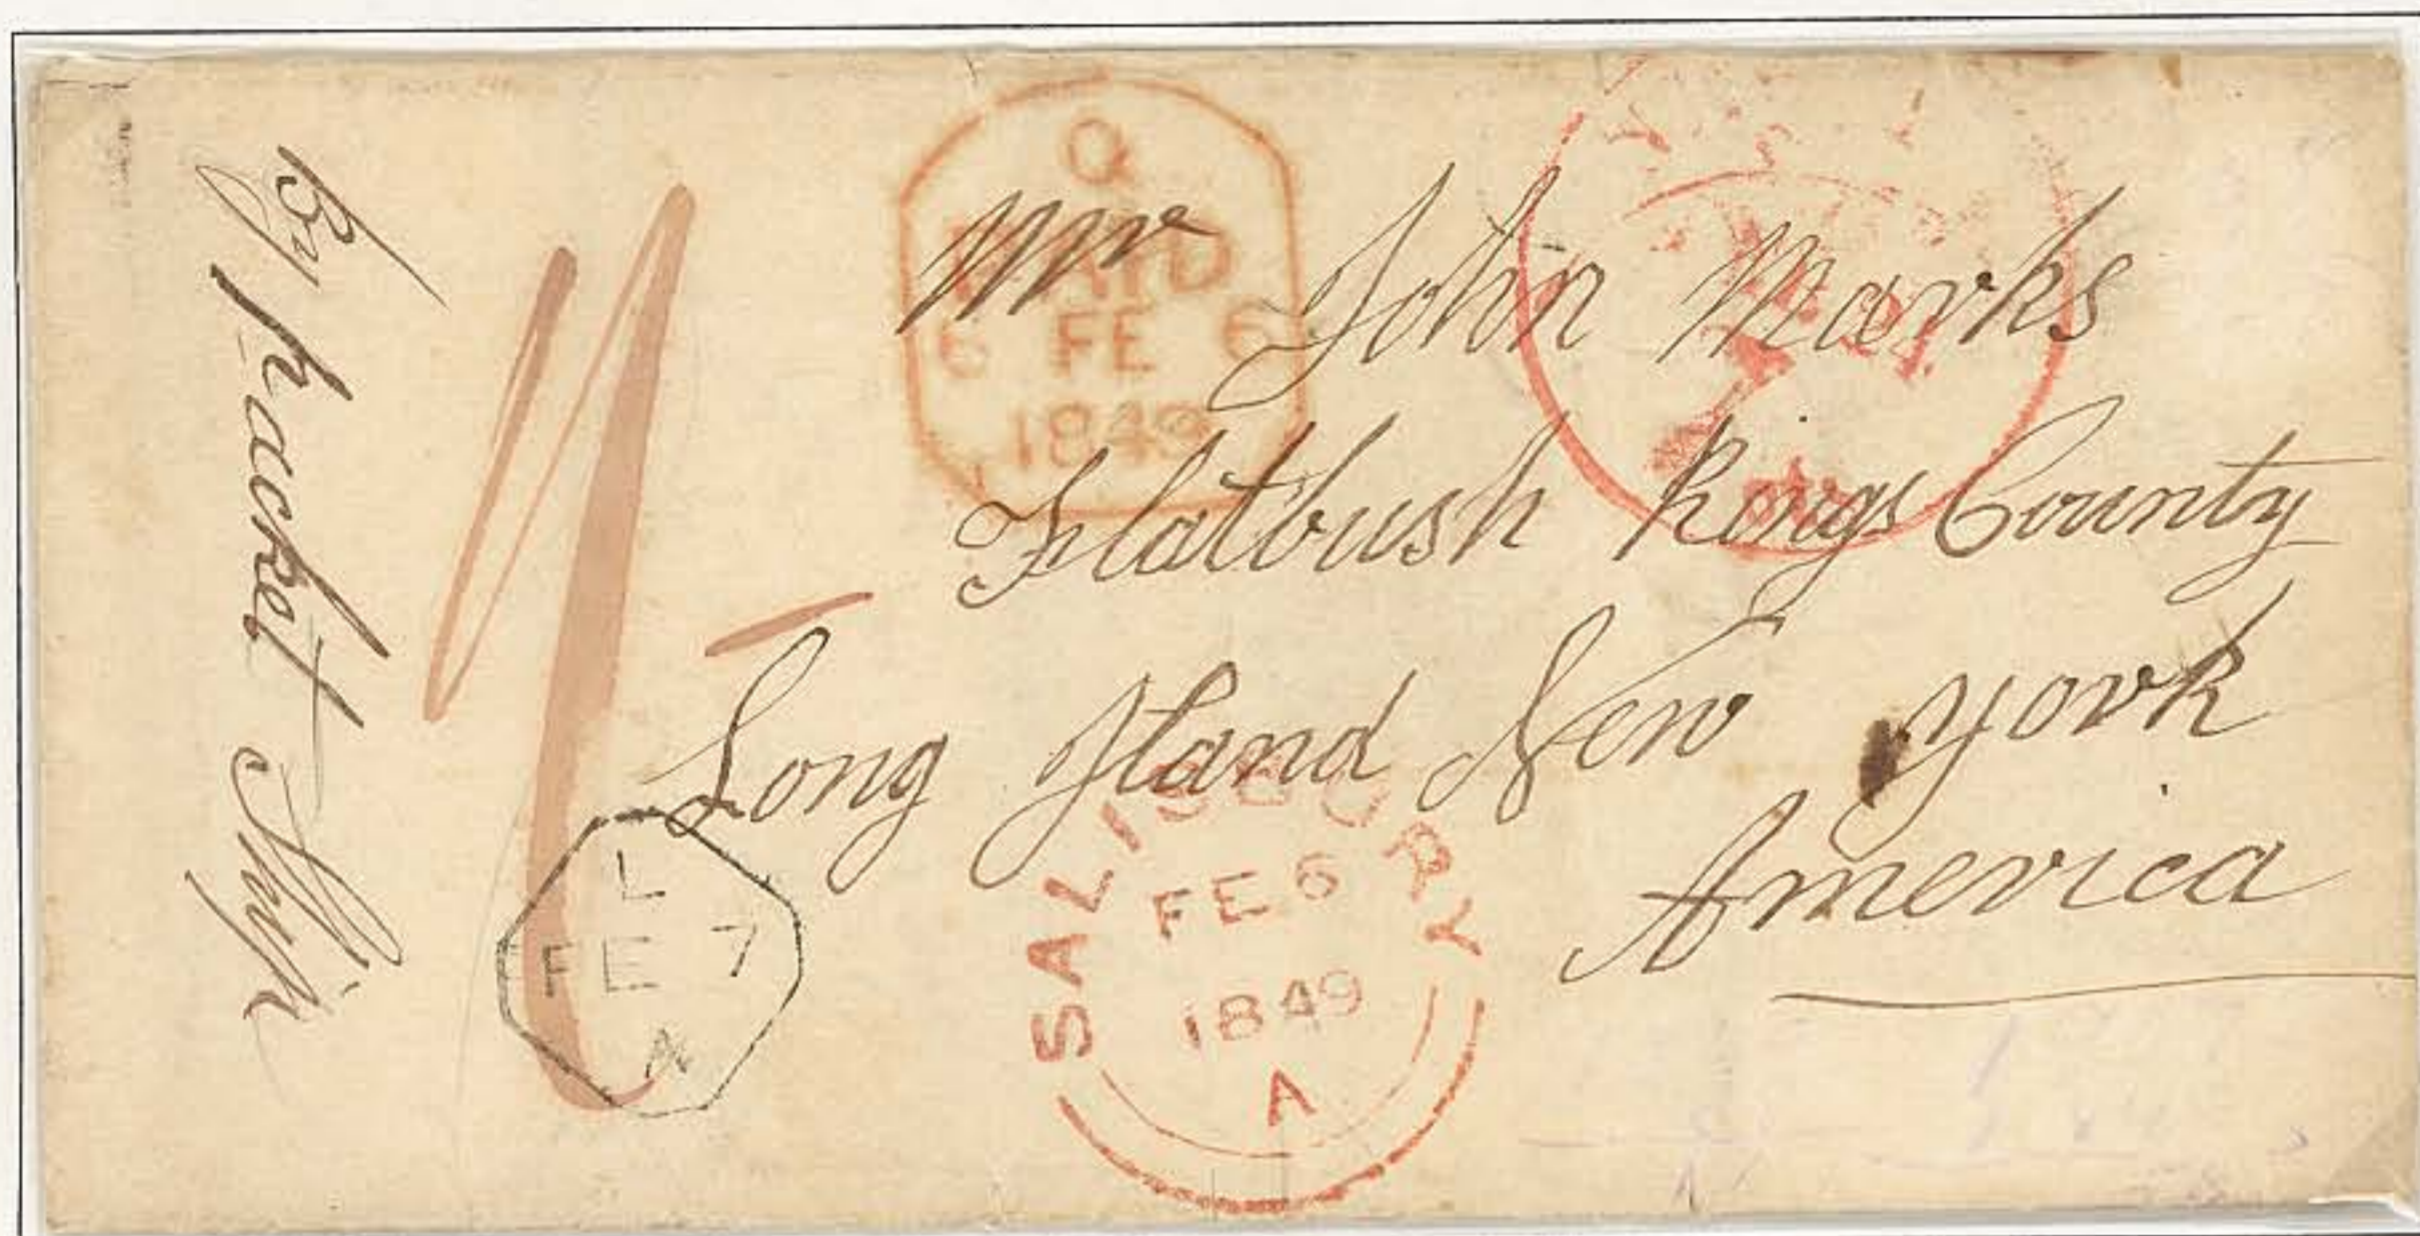 By packet Ship
Q
PAID
6 FE 6
1849
Mr John Marks
Flatbush Kings County
Long Island New York
America
L
FE 7
A
SALISBURY
FE 6
1849
A